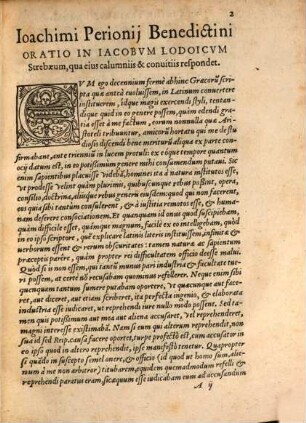 2
Ioachimi Perionij Benedictini
ORATIO IN IACOBVM LODOICVM
Strebæum, qua eius calumniis & conuitiis respondet.
CVM ego decennium fermè abhinc Græcorũ scri-
pta quæ anteà euoluissem, in Latinum conuertere
instituerem, idque magis exercendi styli, tentan-
dique quid in eo genere possem, quàm edendi gra-
tia esset à me factum, eorum nonnulla quæ Ari-
stoteli tribuuntur, amicorũ hortatu qui me de stu-
diosis discendi bene meriturũ aliqua ex parte con-
firmabant, aut triennio in lucem protuli: ex eóque tempore quantum
datum est otij, id in eo potissimum genere mihi consumendum putaui. Sic
enim sapientibus placuisse videbã, homines ita à natura institutos esse,
vt prodesse velint quàm plurimis, quibuscunque rebus possint, opera,
consilio, doctrina, aliisque rebus genere eiusdem: quod qui non facerent,
cùm quia sibi tantùm consulerent, & à iustitia remotos esse, & huma-
nam dissociare consociationem. Et quanquam id munus quod susciepebam,
quàm difficile esset, quámque magnum, facilè ex eo intellegebam, quòd
in eo ipsi scriptores, quos explicare latinis literis instituissem, infinita &
verborum essent & rerum obscuritates: tamen naturæ ac sapientum
præceptis parêre, quàm propter rei difficultatem officio deesse malui.
Quòd si is non essem, qui tanti muneris pari industria & facultate tue-
ri possem, at certè ab accusandum quemquam refellerer. Neque enim sibi
quenquam tantum sumere putabam oportere, vt aut quæcunque faceret,
aut diceret, aut etiam scriberet, ita perfecta ingenio, & elaborata
industria esse iudicaret, vt reprehendi iure nullo modo possent. Sed tamen
quid potissimùm aut mea aut aliena accusaret, vel reprehenderet,
magni interesse existimabã. Nam si eum qui alterum reprehendit, non
modò id sed Reip. causa facere oportet, turpe profectò est, cùm accusatur in
eo ipso quod in altero reprehendit, ipse manifestò tenetur. Quapropter
si quãdo in suscepto semel amore, & officio (id quod vt homo sum, alie-
num à me non arbitror) titubarem, equidem quemadmodum refelli &
reprehendi paratus eram, sic æquum esse iudicabam eum ad accusandum
A ij